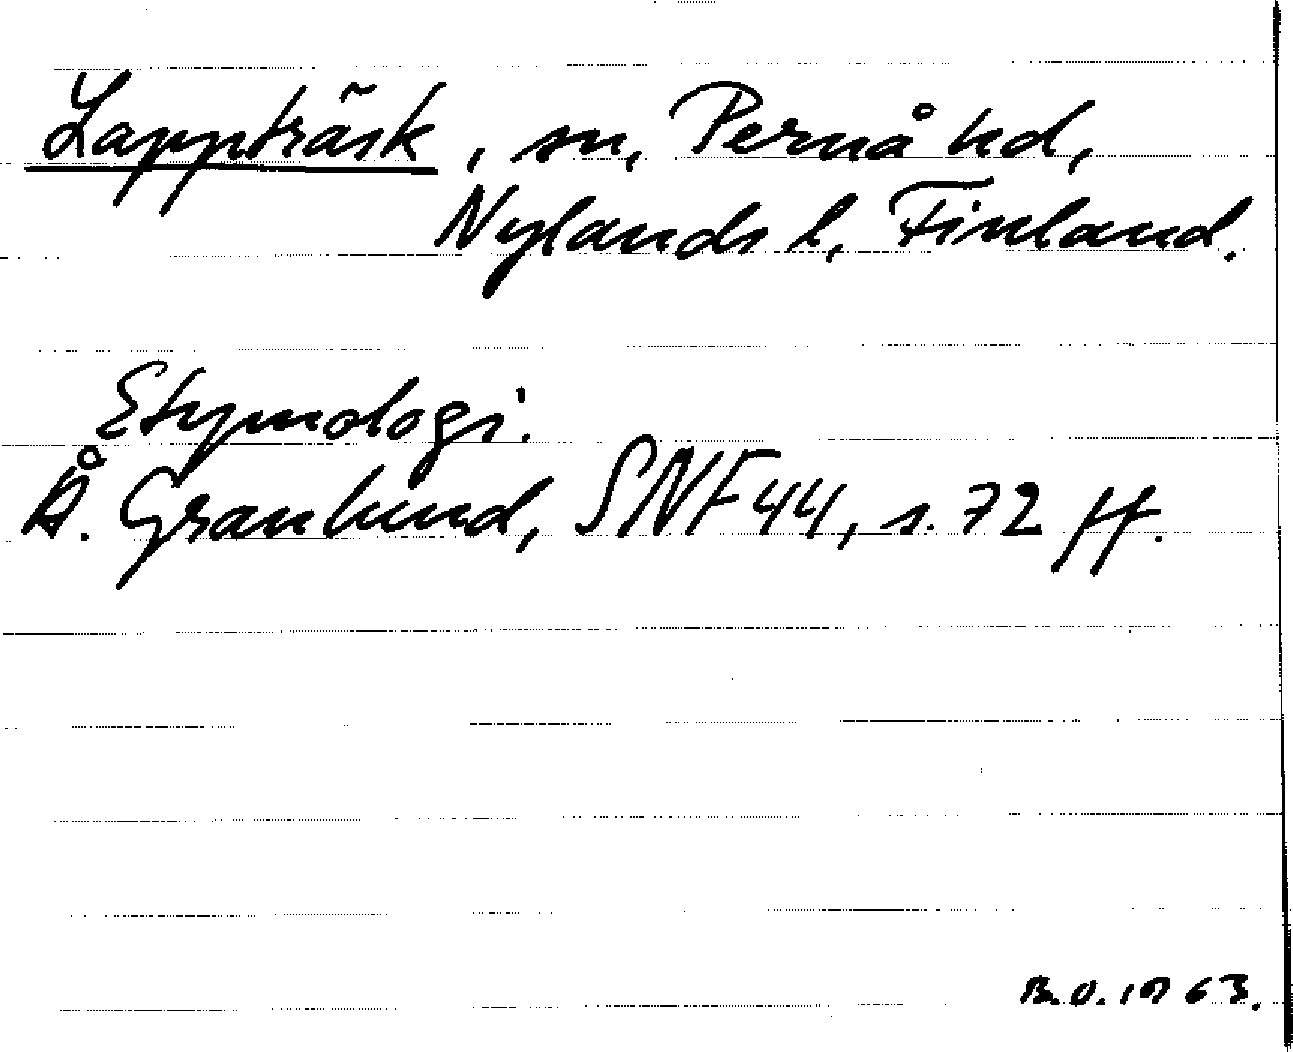 Lappträsk, sn, Pernå hd,
Nylands l, Finland.
Etymologi.
Å. Granlund, SNF 44, s. 72 ff.
B.O. 1963.